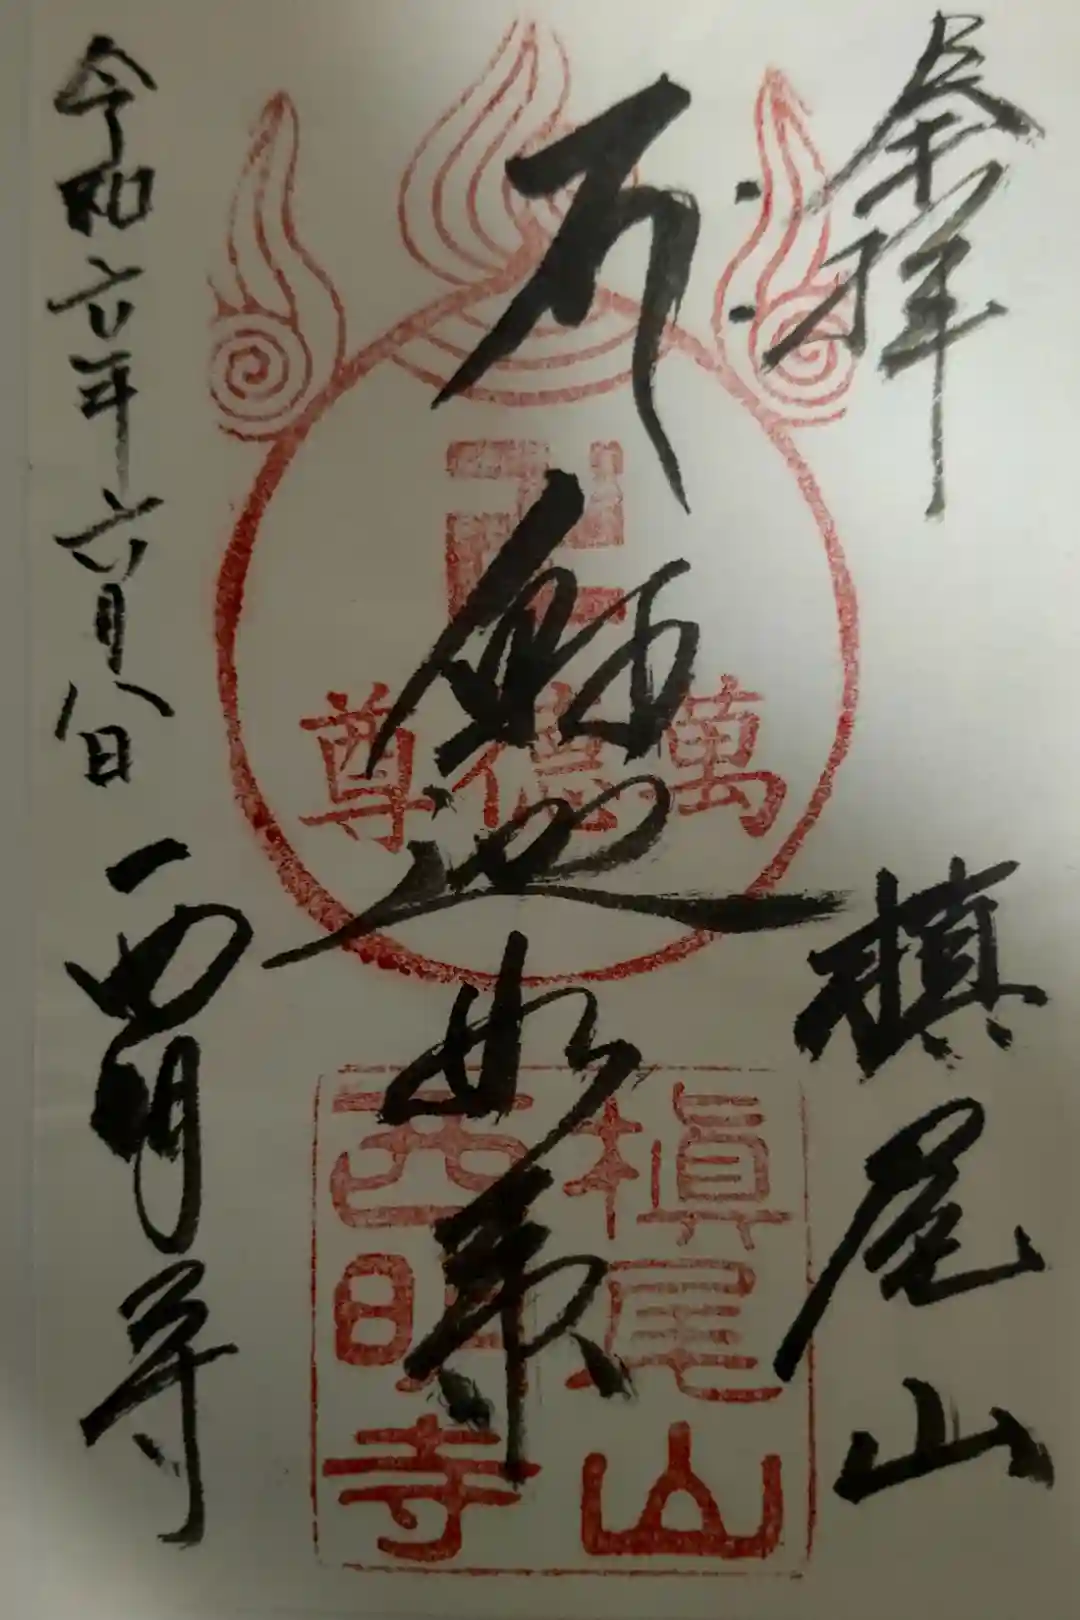 奉拝
槇尾山
𑖥𑖾 釈迦如来
令和六年六月八日
西明寺
卍
萬德尊
槇尾山
西明寺